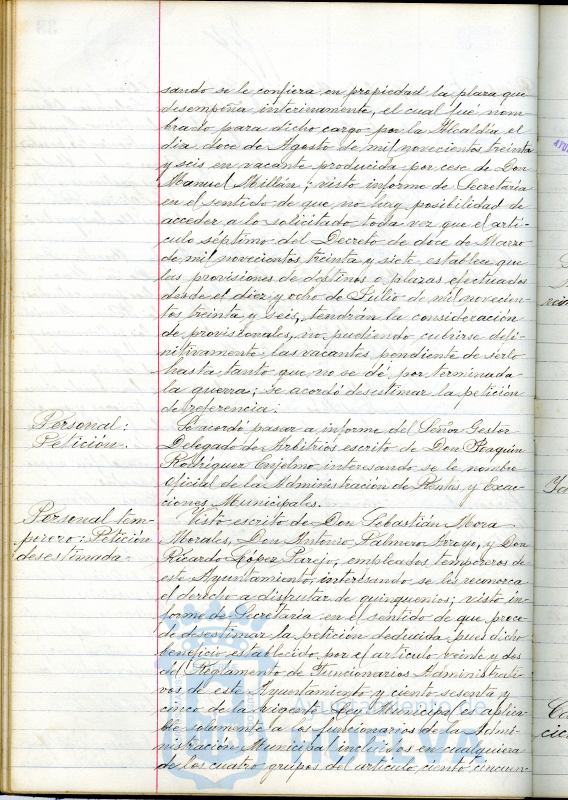 sando se le confiera en propiedad la plaza que
desempeña interinamente, el cual fué nom
brado para dicho cargo por la Alcaldía el
dia doce de Agosto de mil novecientos treinta
y seis en vacante producida por cese de Don
Manuel Millán; visto informe de Secretaria
en el sentido de que no hay posibilidad de
acceder a lo solicitado toda vez que el arti-
culo séptimo del Decreto de doce de Marzo
de mil novecientos treinta y siete establece que
las provisiones de destinos o plazas efectuados
desde el diez y ocho de Julio de mil novecien-
tos treinta y seis, tendrán la consideración
de provisionales, no pudiendo cubrirse defi-
nitivamente las vacantes pendiente de serlo
hasta tanto que no se dé por terminada
la guerra; se acordó desestimar la petición
de referencia.
Personal:
Petición.
Se acordó pasar a informe del Señor Gestor
Delegado de Arbitrios escrito de Don Joaquin
Rodriguez interesando se le nombre
oficial de la Administración de Rentas y Exac-
ciones Municipales.
Personal tem-
porero: Petición
desestimada.
Visto escrito de Don Sebastián Mora
Morales, Don Antonio Palmero Arroyo, y Don
Ricardo López Parejo, empleados temporeros de
este Ayuntamiento, interesando se les reconozca
el derecho a disfrutar de quinquenios; visto in-
forme de Secretaría en el sentido de que proce-
de desestimar la petición deducida, pues dicho
beneficio establecido por el articulo veinte y dos
del Reglamento de Funcionarios Administrati-
vos de este Ayuntamiento y ciento sesenta y
cinco de la vigente Ley Municipal es aplica-
ble solamente a los funcionarios de la Admi-
nistración Municipal incluidos en cualquiera
de los cuatro grupos del articulo ciento cincuen-
Ayuntamiento de
HUELVA